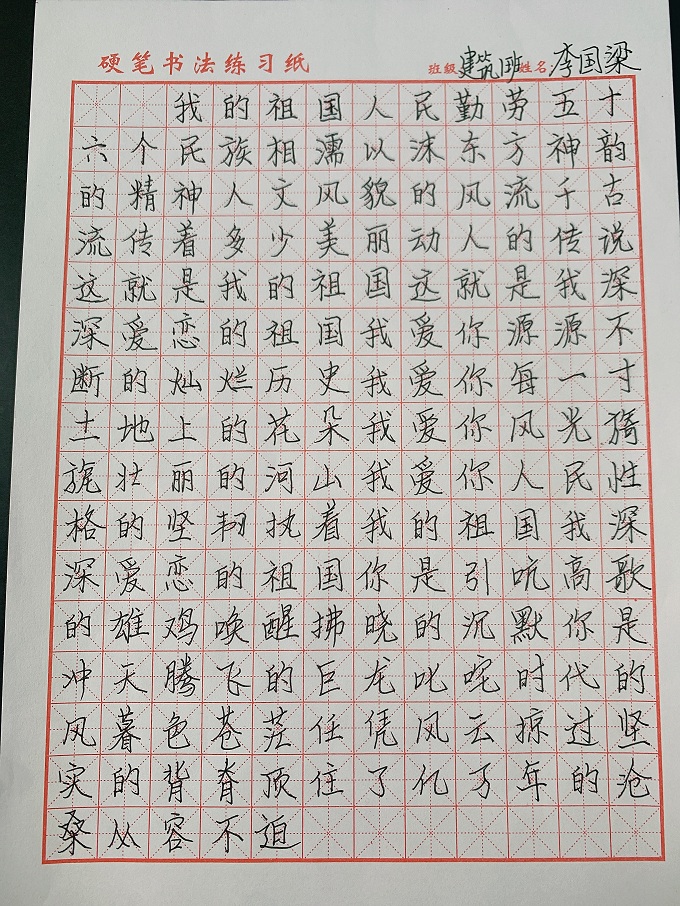 硬笔书法练习纸 班级 建筑国班 姓名 李国梁
我的祖国人民勤劳五十
六个民族相濡以沫东方神韵
的精神人文风貌的风流千古
流传着多少美丽动人的传说
这就是我的祖国这就是我深
深爱恋的祖国我爱你源源不
断的灿烂历史我爱你每一寸
土地上的花朵我爱你风光旖
旎壮丽的河山我爱你人民性
格的坚韧执着我的祖国我深
深爱恋的祖国你是引吭高歌
的雄鸡唤醒拂晓的沉默你是
冲天腾飞的巨龙叱咤时代的
风暮色苍茫任凭风云掠过坚
实的背脊顶住了亿万年的沧
桑从容不迫